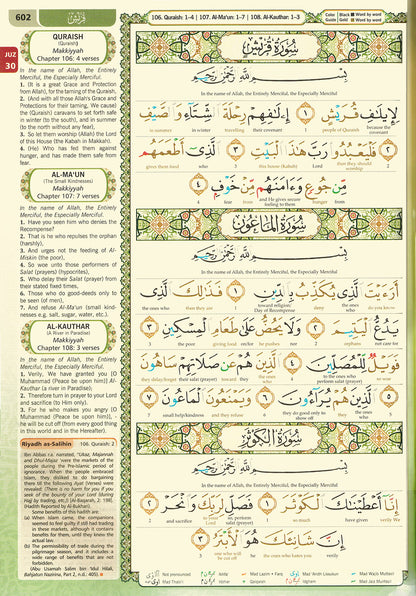 602
قُرَيْش
106. Quraish: 1-4 | 107. Al-Ma'un: 1-7 | 108. Al-Kauthar: 1-3
Color Guide
Black Word by word
Gold Word by word
JUZ
30
QURAISH
(Quraish)
Makkiyyah
Chapter 106: 4 verses
In the name of Allah, the Entirely
Merciful, the Especially Merciful.
1. (It is a great Grace and Protection
from Allah), for the taming of the Quraish.
2. (And with all those Allah's Grace and
Protections for their taming, We cause)
the (Quraish) caravans to set forth safe
in winter (to the south), and in summer
(to the north without any fear),
3. So let them worship (Allah) the Lord
of this House (the Kabah in Makkah).
4. (He) Who has fed them against
hunger, and has made them safe from
fear.
AL-MA'UN
(The Small Kindnesses)
Makkiyyah
Chapter 107: 7 verses
In the name of Allah, the Entirely
Merciful, the Especially Merciful.
1. Have you seen him who denies the
Recompense?
2. That is he who repulses the orphan
(harshly),
3. And urges not the feeding of Al-
Miskin (the poor),
4. So woe unto those performers of
Salat (prayers) (hypocrites),
5. Who delay their Salat (prayer) from
their stated fixed times,
6. Those who do good-deeds only to
be seen (of men),
7. And refuse Al-Ma'un (small kind-
nesses e.g. salt, sugar, water, etc.).
AL-KAUTHAR
(A River in Paradise)
Makkiyyah
Chapter 108: 3 verses
In the name of Allah, the Entirely
Merciful, the Especially Merciful.
1. Verily, We have granted you [O
Muhammad (Peace be upon him)] Al-
Kauthar (a river in Paradise);
2. Therefore turn in prayer to your Lord
and sacrifice (to Him only).
3. For he who makes you angry [O
Muhammad (Peace be upon him)], -
he will be cut off (from every good thing
in this world and in the Hereafter).
Riyadh as-Salihin 106. Quraish: 2
Ibn Abbas r.a. narrated, "Ukaz, Majannah
and Dhul-Majaz were the markets of the
people during the Pre-Islamic period of
ignorance. When the people embraced
Islam, they disliked to do bargaining
there till the following Ayat (Verse) were
revealed: There is no harm for you if you
seek of the bounty of your Lord (during
Hajj by trading, etc.)
(Hadith Reported by Al-Bukhari)
Some benefits of it:
(a) When Islam came, the companions
seemed to feel guilty if still had trading
in these markets, although it contains
benefits for them, until they knew the
actual law.
(b) The permissibility of trade during the
pilgrimage season, and it includes a
wide range of benefits that are not
forbidden.
(Abu Usamah Salim bin 'Idul Hilali,
Bahjatun Nazirina, Part 2, n.d. 405).
سُورَةُ قُرَيْشٍ
بِسْمِ اللَّهِ الرَّحْمَٰنِ الرَّحِيمِ
In the name of Allah, the Entirely Merciful, the Especially Merciful
لِإِيلَٰفِ قُرَيْشٍ ١ إِۦلَٰفِهِمْ رِحْلَةَ ٱلشِّتَآءِ وَٱلصَّيْفِ
because the covenant people of Quraish 1 their covenant travelling in winter in summer
٢ فَلْيَعْبُدُوا۟ رَبَّ هَٰذَا ٱلْبَيْتِ ٣ ٱلَّذِىٓ أَطْعَمَهُم
2 thus they should worship Lord this house (Kabah) 3 who gives them food
مِّن جُوعٍ وَءَامَنَهُم مِّنْ خَوْفٍۭ ٤
from hunger and He gives secure feeling to them from fear 4
سُورَةُ الْمَاعُونِ
بِسْمِ اللَّهِ الرَّحْمَٰنِ الرَّحِيمِ
In the name of Allah, the Entirely Merciful, the Especially Merciful
أَرَءَيْتَ ٱلَّذِى يُكَذِّبُ بِٱلدِّينِ ١ فَذَٰلِكَ ٱلَّذِى
do you know who deny toward religion/Day of Recompense 1 then they are the ones who
يَدُعُّ ٱلْيَتِيمَ ٢ وَلَا يَحُضُّ عَلَىٰ طَعَامِ ٱلْمِسْكِينِ ٣
not care for orphans 2 nor he pushes on/for giving food the poor 3
فَوَيْلٌ لِّلْمُصَلِّينَ ٤ ٱلَّذِينَ هُمْ عَن صَلَاتِهِمْ سَاهُونَ
so woe to the ones who perform salat (prayer) 4 the ones who they toward their salat (prayer) they delay/forget
٥ ٱلَّذِينَ هُمْ يُرَآءُونَ ٦ وَيَمْنَعُونَ ٱلْمَاعُونَ ٧
5 the ones who they they do good only to show off 6 and they refuse small help/kindness 7
سُورَةُ الْكَوْثَرِ
بِسْمِ اللَّهِ الرَّحْمَٰنِ الرَّحِيمِ
In the name of Allah, the Entirely Merciful, the Especially Merciful
إِنَّآ أَعْطَيْنَٰكَ ٱلْكَوْثَرَ ١ فَصَلِّ لِرَبِّكَ وَٱنْحَرْ ٢
verily We have given you so much 1 so pray for your Lord and sacrifice 2
إِنَّ شَانِئَكَ هُوَ ٱلْأَبْتَرُ ٣
verily the ones who hates you he one who will be cut off 3